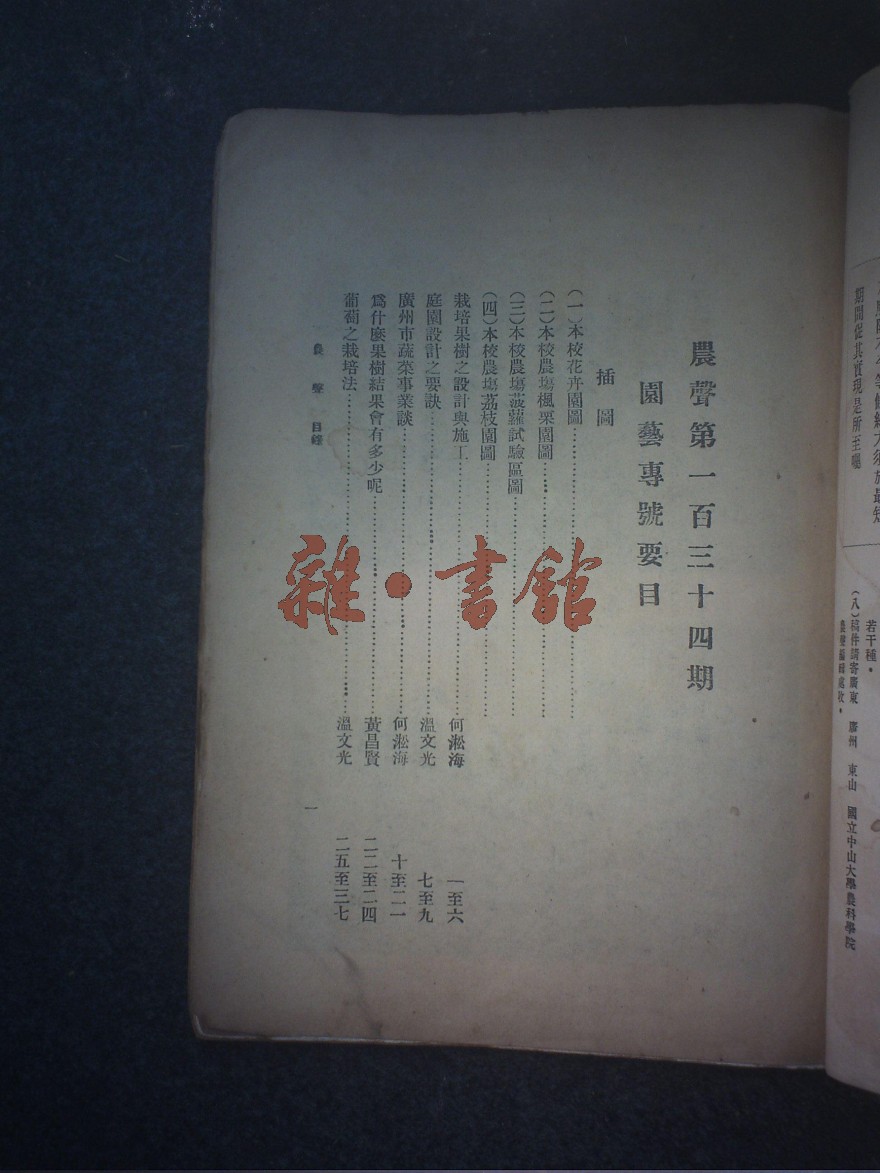 農聲第一百三十四期
園藝專號要目
插圖
(一)本校花卉園圖
(二)本校農塲楓栗園圖
(三)本校農塲菠蘿試驗區圖
(四)本校農塲荔枝園圖
栽培果樹之設計與施工 何淞海 一至六
庭園設計之要訣 溫文光 七至九
廣州市蔬菜事業談 何淞海 十至二一
爲什麼果樹結果會有多少呢 黃昌賢 二二至二四
葡萄之栽培法 溫文光 二五至三七
農聲 目錄 一
雜·書館
期間促其實現是所至囑
若干種。
(八)稿件請寄廣東 東山 國立中山大學農科學院